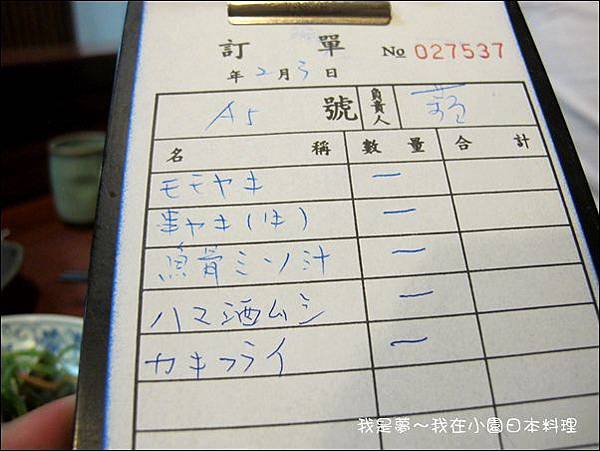 訂單 No 027537
年 2月3日
A5 號 負責人
名稱 數量 合計
モモヤキ 一
串ヤキ(1本) 一
魚骨ミソ汁 一
ハマ酒ムシ 一
カキフライ 一
我是夢～我在小園日本料理